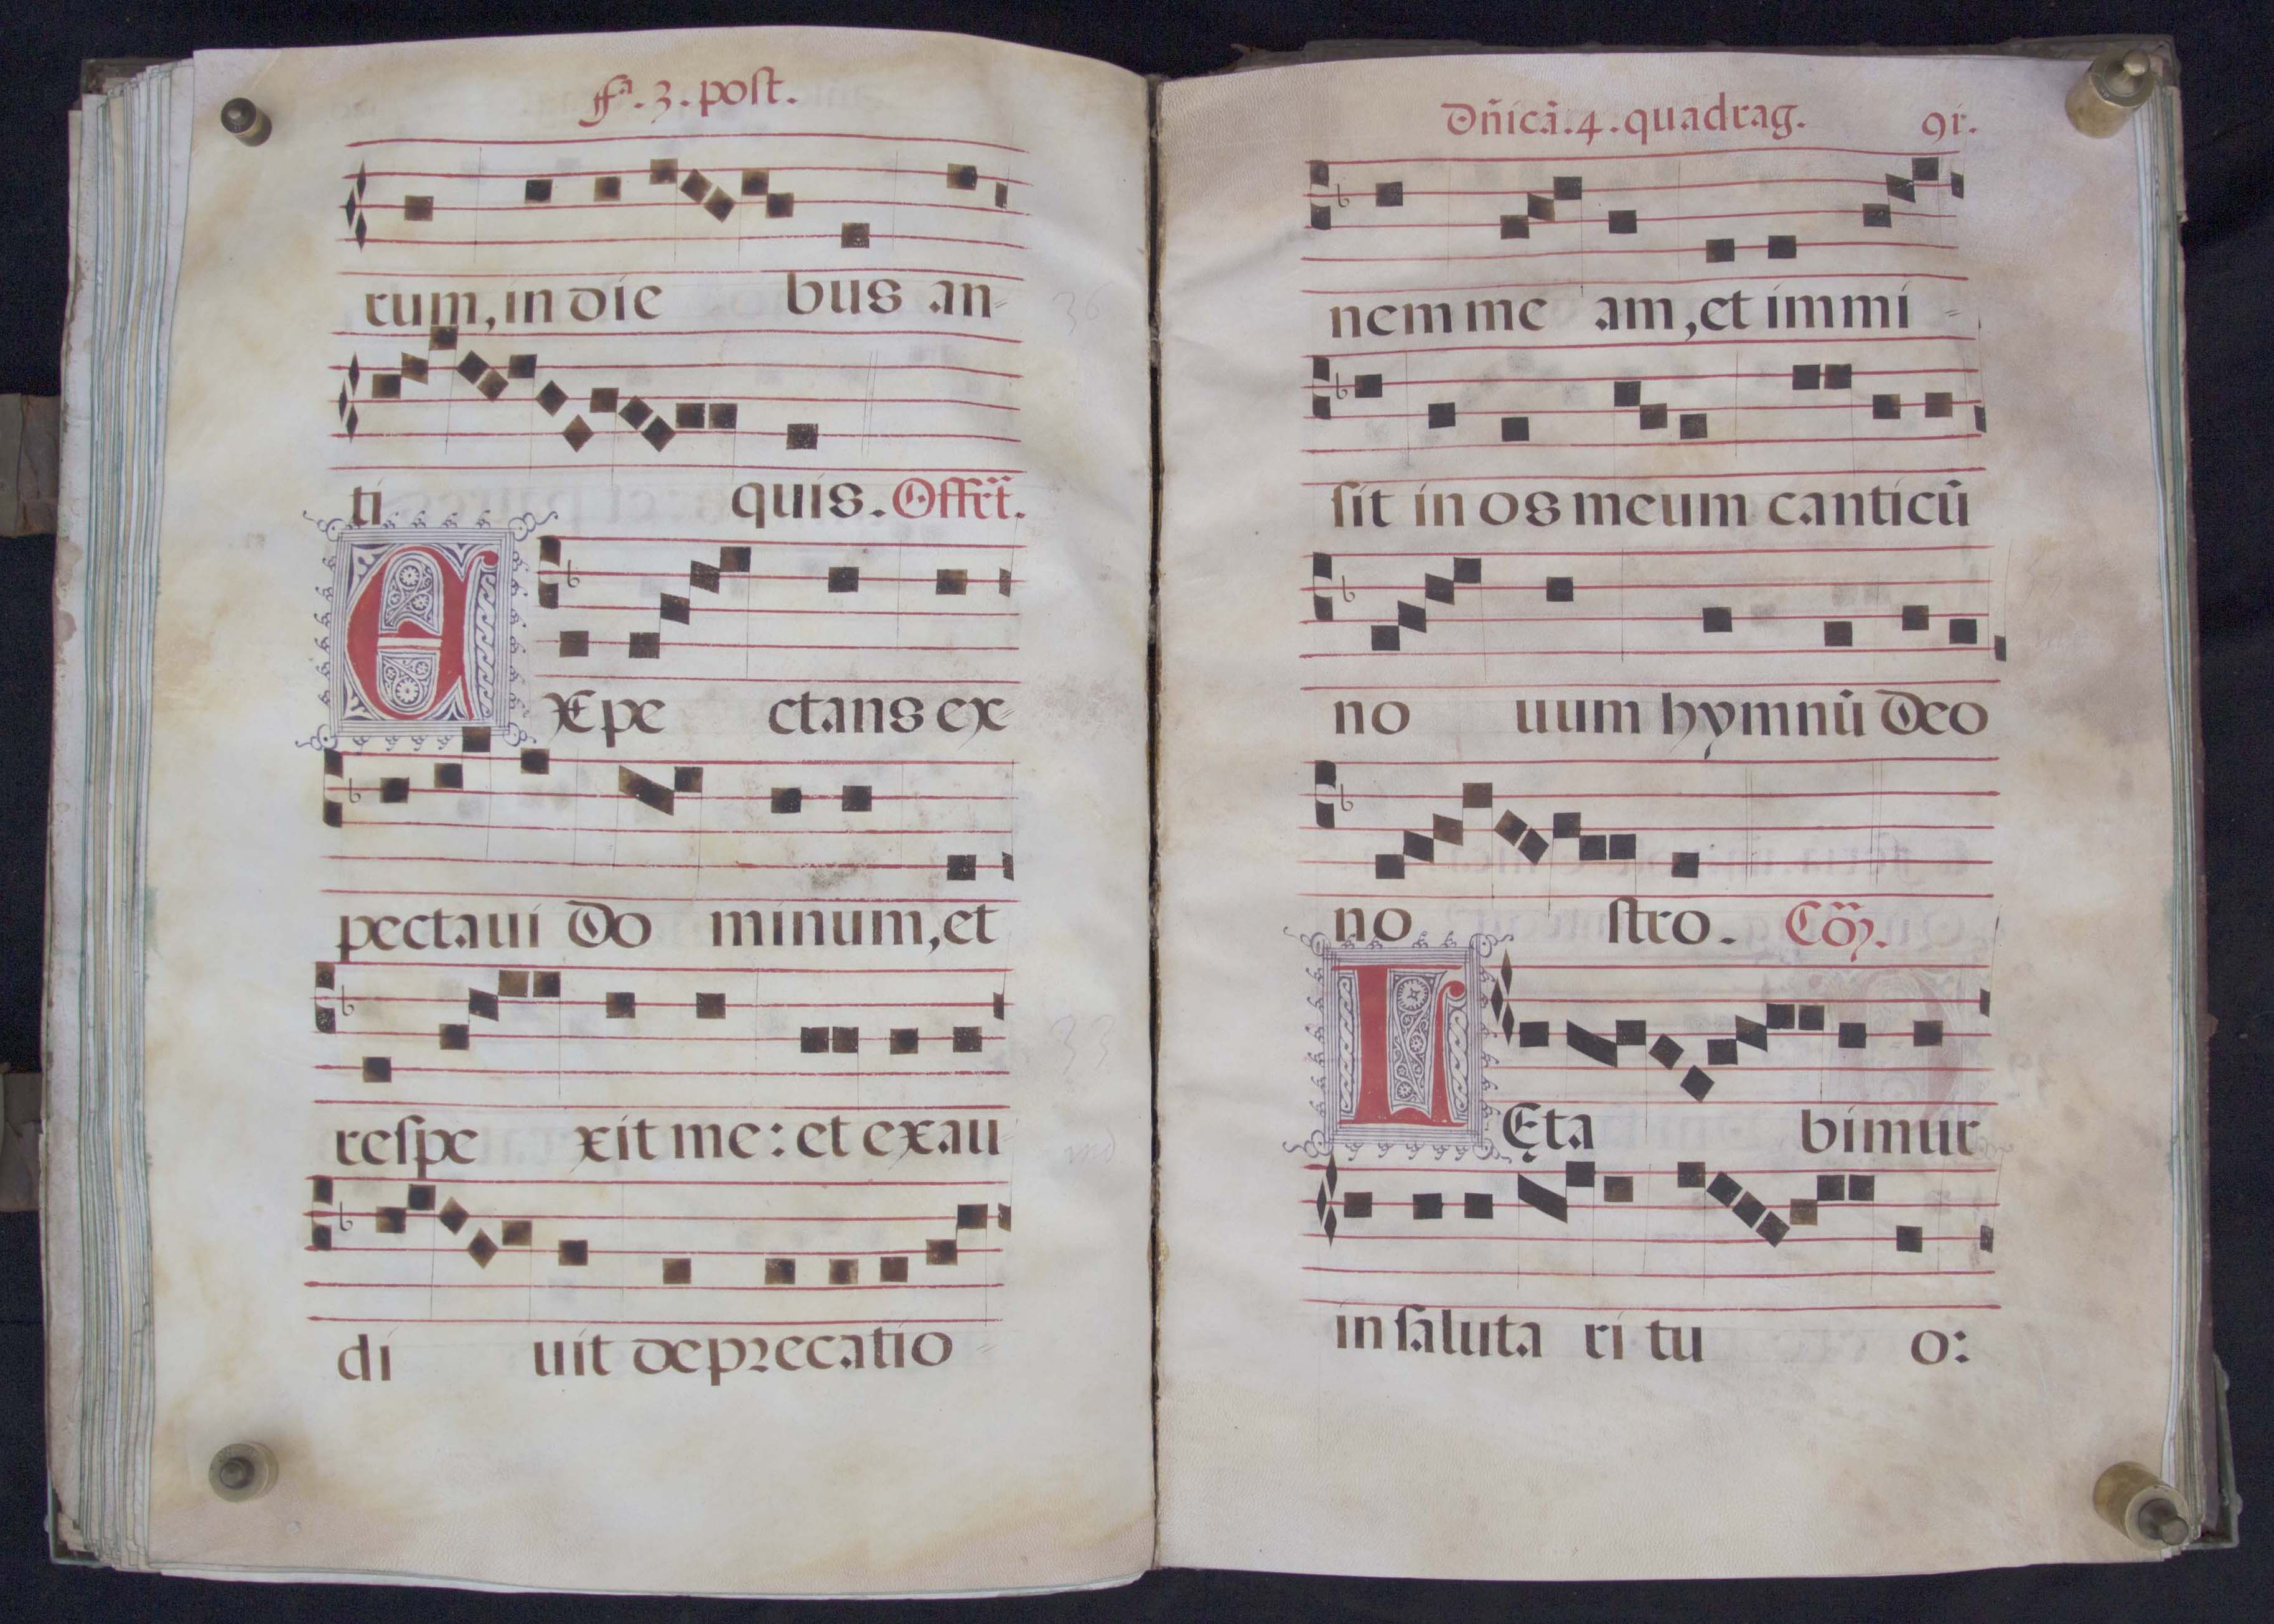 ffª.3.post.
rum, in die bus an-
ti quis. Offrt̃.
EXpe ctans ex-
pectaui Do minum, et
reſpe xit me: et exau-
di uit deprecatio-
Dñicã.4.quadrag. 91.
nem me am, et immi-
ſit in os meum canticũ
no uum hymnũ Deo
no ſtro. Cõ.
LEta bimur
in ſaluta ri tu o: